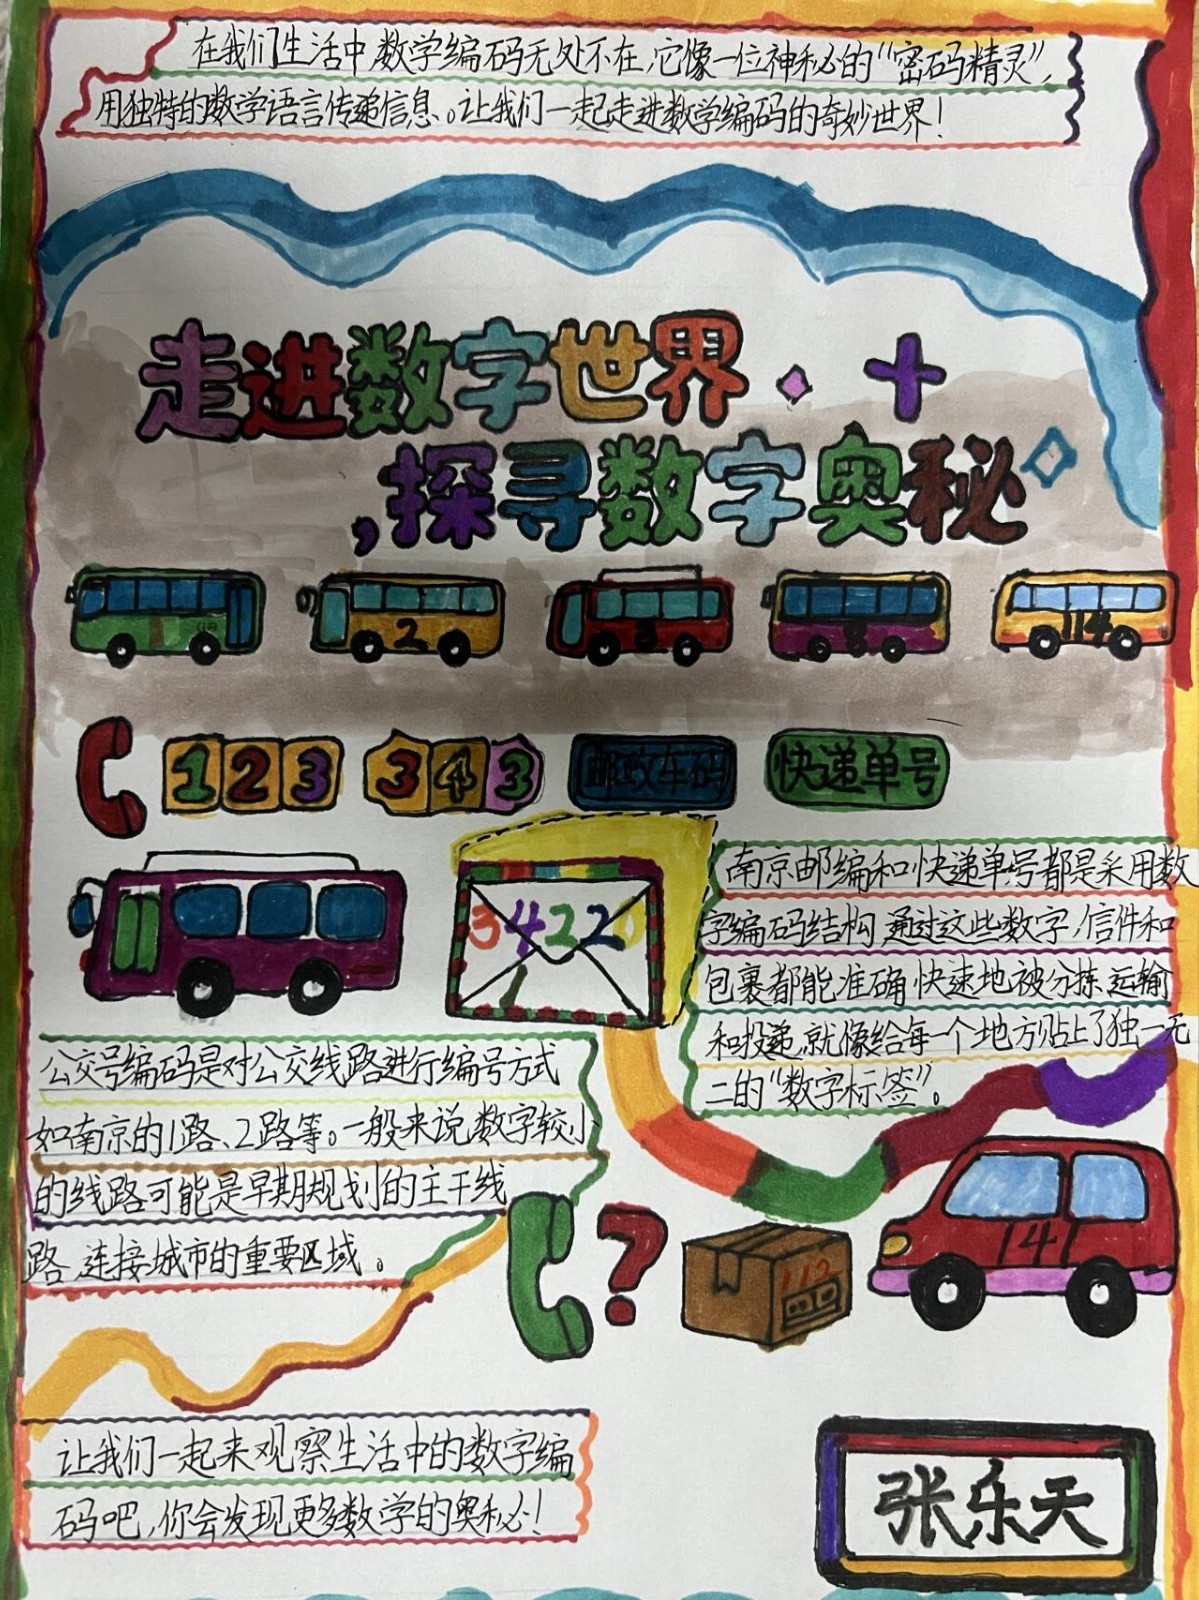 在我们生活中,数学编码无处不在,它像一位神秘的“密码精灵”,
用独特的数学语言传递信息。让我们一起走进数学编码的奇妙世界!
走进数字世界
,探寻数字奥秘
2
8
14
123
343
邮政车码
快递单号
南京邮编和快递单号都是采用数
字编码结构,通过这些数字,信件和
包裹都能准确,快速地被分拣,运输
和投递,就像给每一个地方贴上了独一无
二的“数字标签”。
3422
公交号编码是对公交线路进行编号方式
如南京的1路、2路等。一般来说数字较小
的线路可能是早期规划的主干线
路,连接城市的重要区域。
?
112
14
让我们一起来观察生活中的数字编
码吧,你会发现更多数学的奥秘!
张乐天